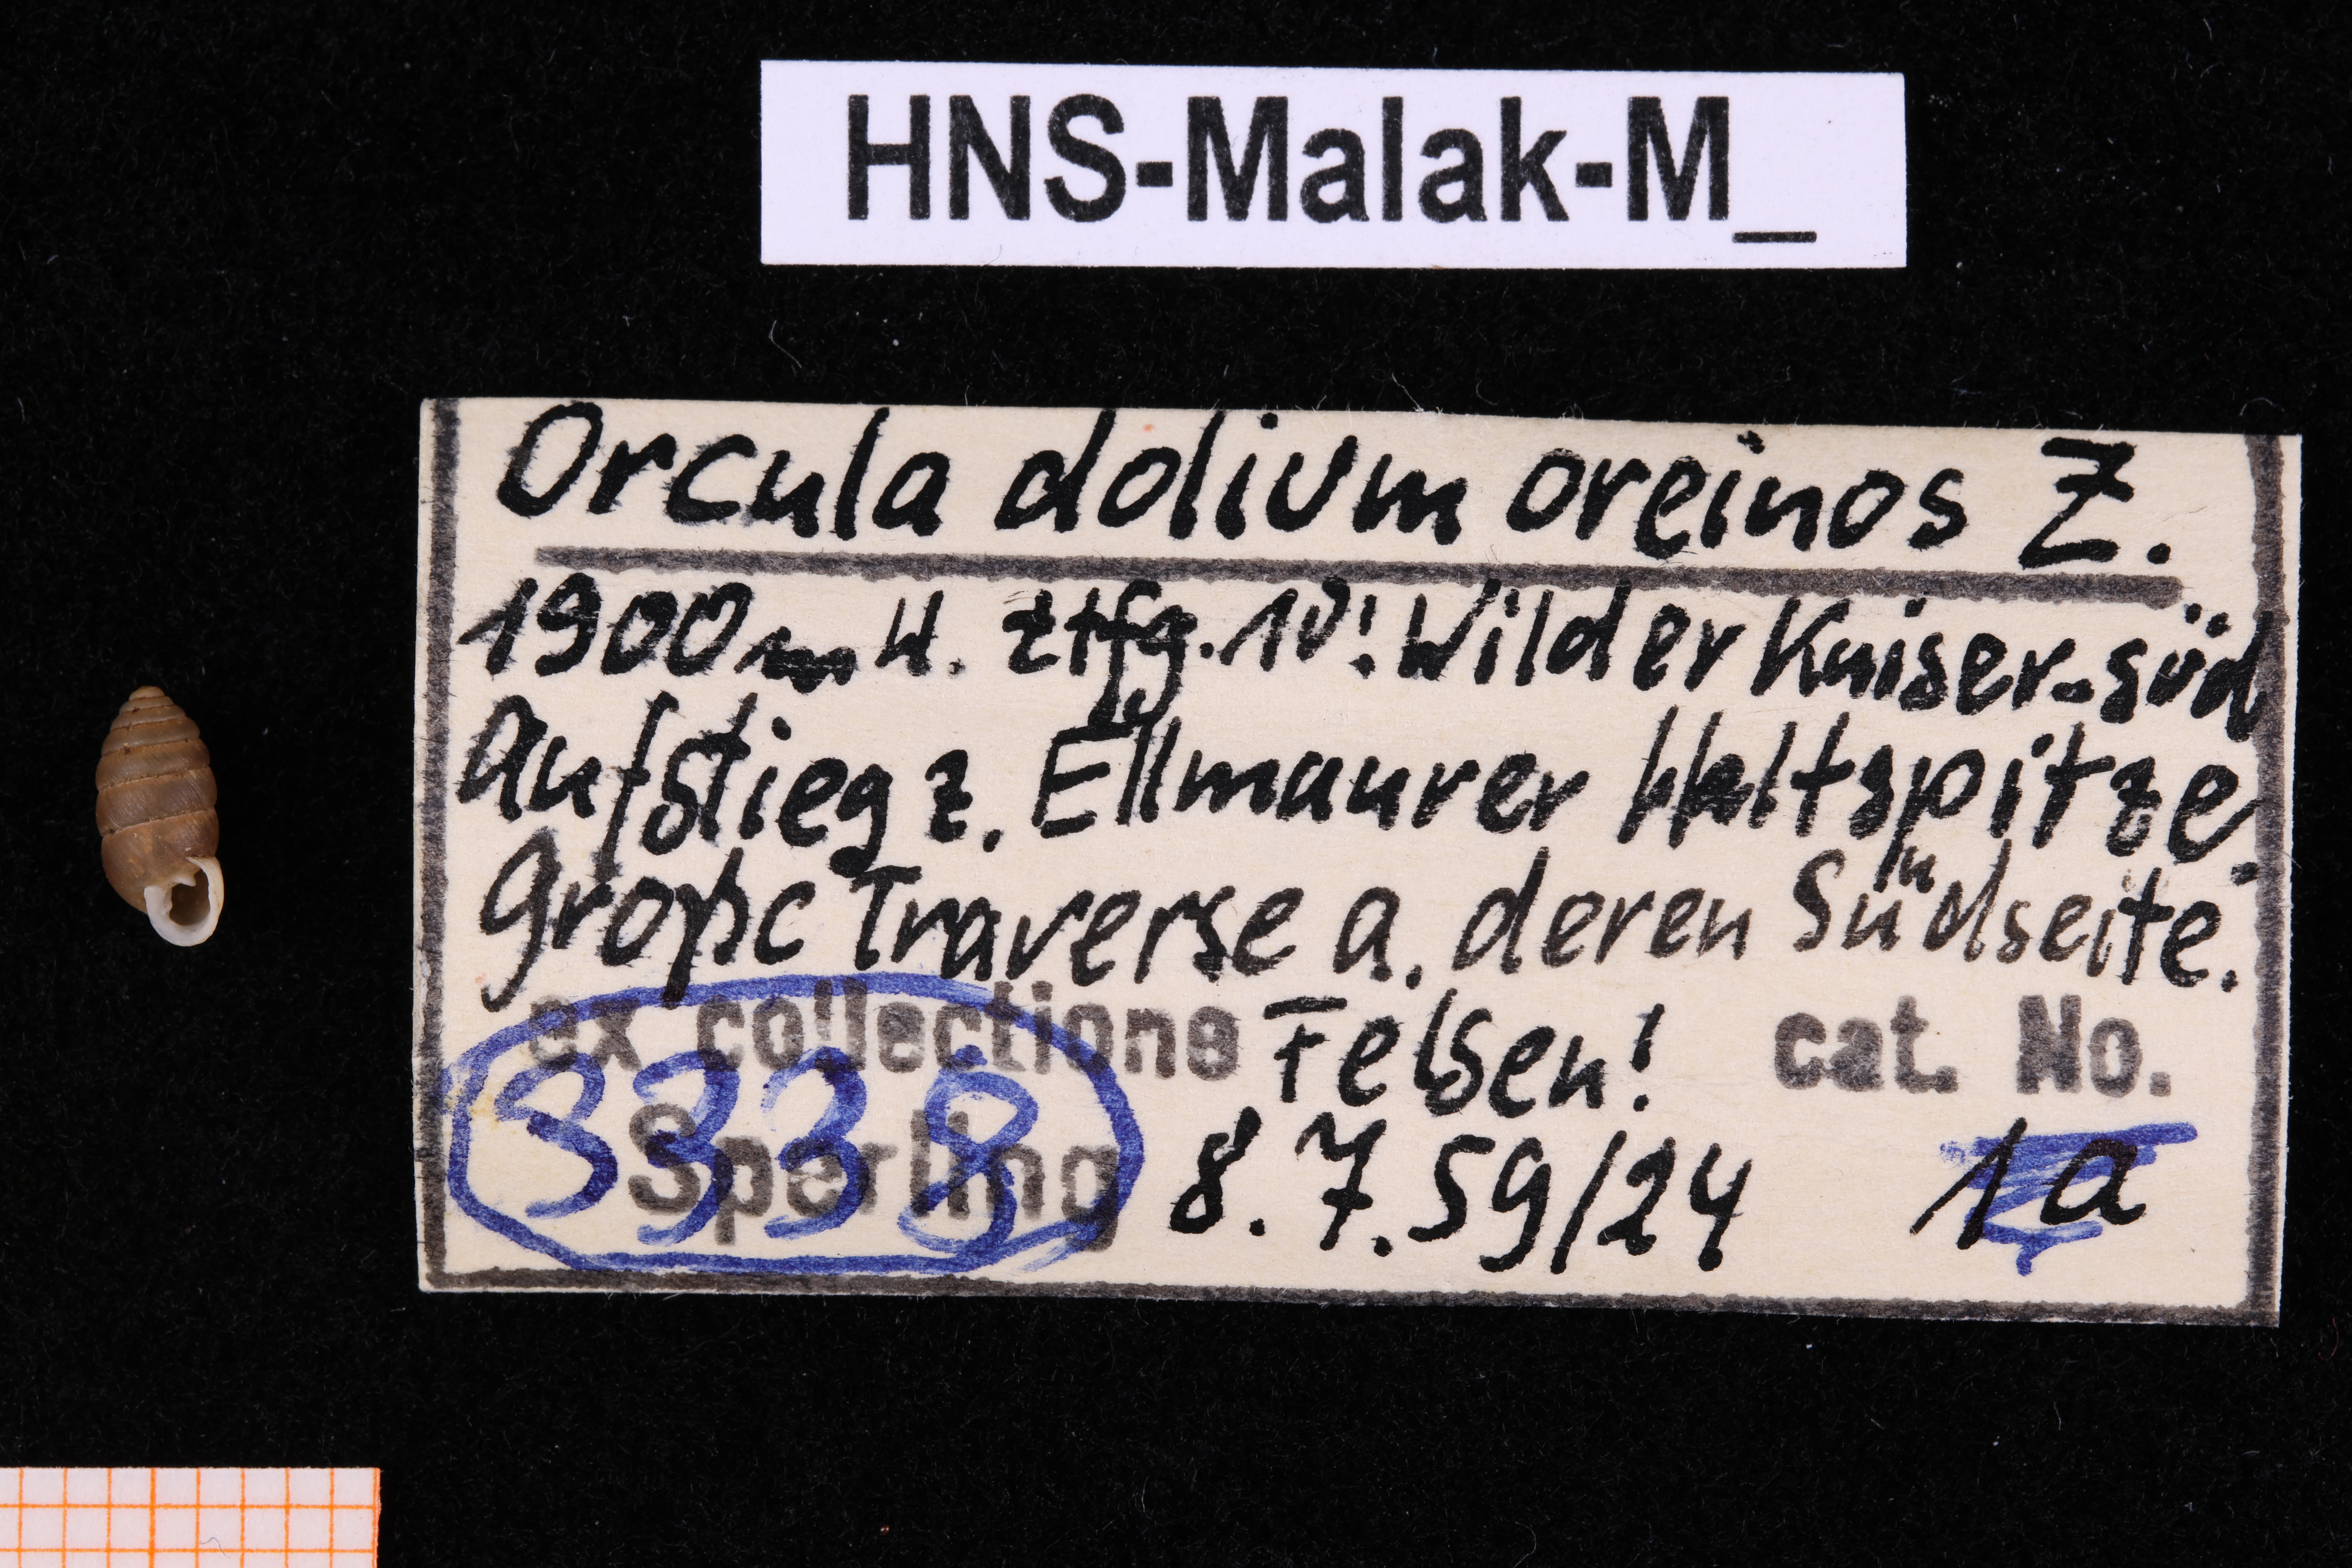 HNS-Malak-M_
Orcula dolium oreinos Z.
1900m H. Wilder Kaiser-süd
Aufstieg z. Ellmaurer Haltspitze.
große Traverse a. deren Südseite.
ex collectione Felsen! cat. No.
3338 Sperling 8.7.59/24 1a